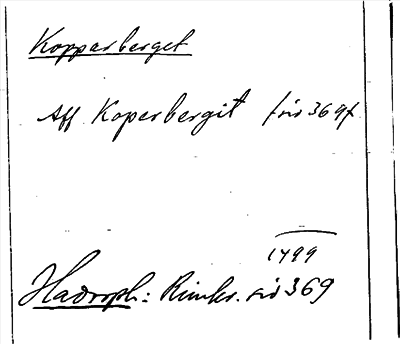 Kopparberget
Aff Koperbergit sid 369f.
1499
Hadorph: Rimkr. sid 369